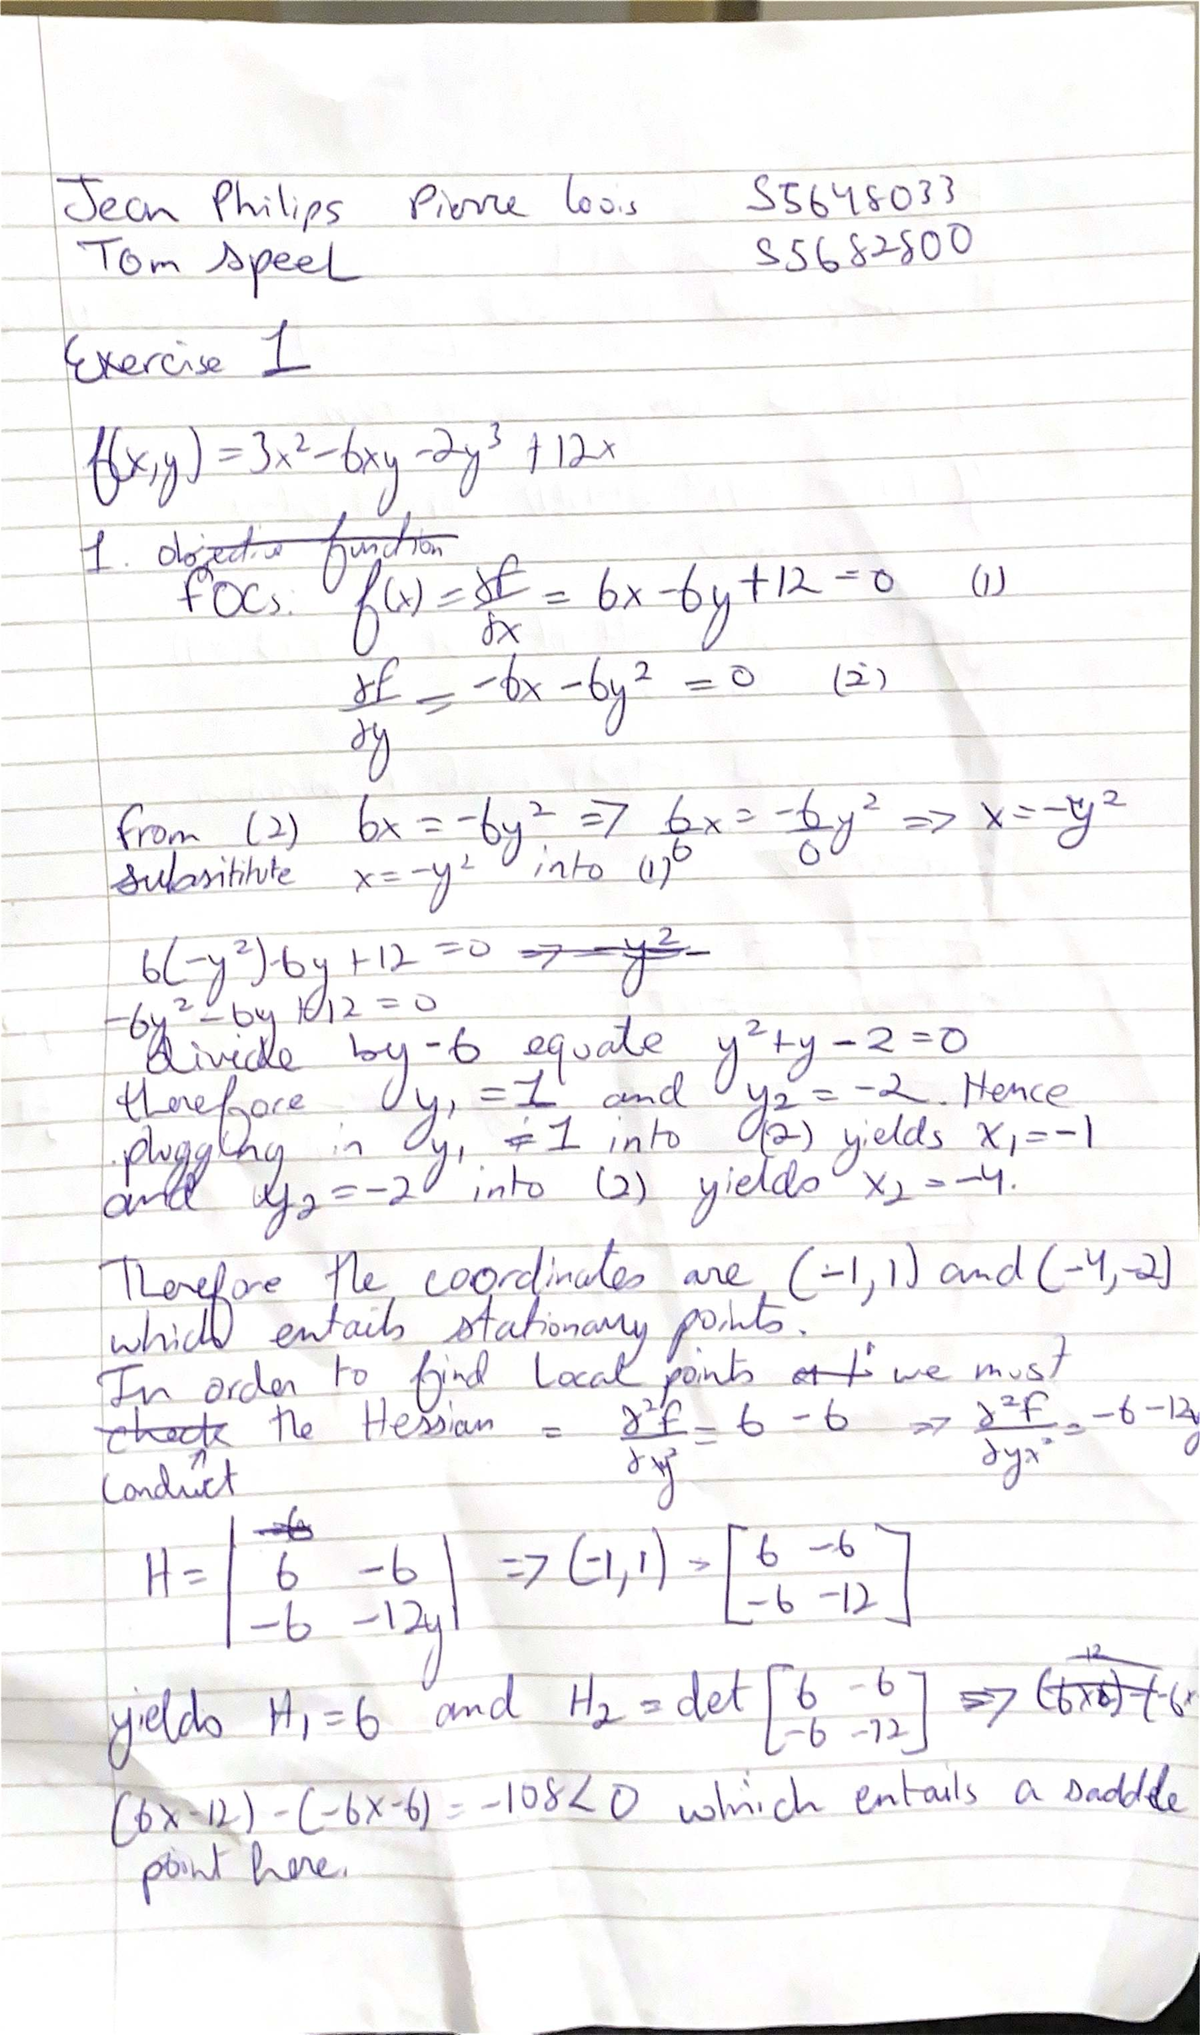 Jean Philips Pierre Loois S5648033
Tom Speel S5682800
Exercise 1
f(x,y) = 3x² - 6xy - 2y³ + 12x
1. objective function
FOCs: f(x) = ∂f/∂x = 6x - 6y + 12 = 0 (1)
∂f/∂y = -6x - 6y² = 0 (2)
from (2) 6x = -6y² => 6x/6 = -6/6 y² => x = -y²
subsititute x = -y² into (1)
6(-y²) - 6y + 12 = 0 => -y² -
-6y² - 6y + 12 = 0
divide by -6 equate y² + y - 2 = 0
therefore y₁ = 1 and y₂ = -2. Hence
plugging in y₁ = 1 into (2) yields x₁ = -1
and y₂ = -2 into (2) yields x₂ = -4.
Therefore the coordinates are (-1, 1) and (-4, -2)
which entails stationary points.
In order to find local points we must
check the Hessian = ∂²f/∂xy² = 6 - 6 => ∂²f/∂yx² = -6 - 12y
conduct
H = | 6 -6 | => (-1, 1) = [ 6 -6 ]
| -6 -12y | [ -6 -12 ]
yields H₁ = 6 and H₂ = det [ 6 -6 ] =>
[ -6 -12 ]
(6x-12) - (-6x-6) = -108 < 0 which entails a saddle
point here.